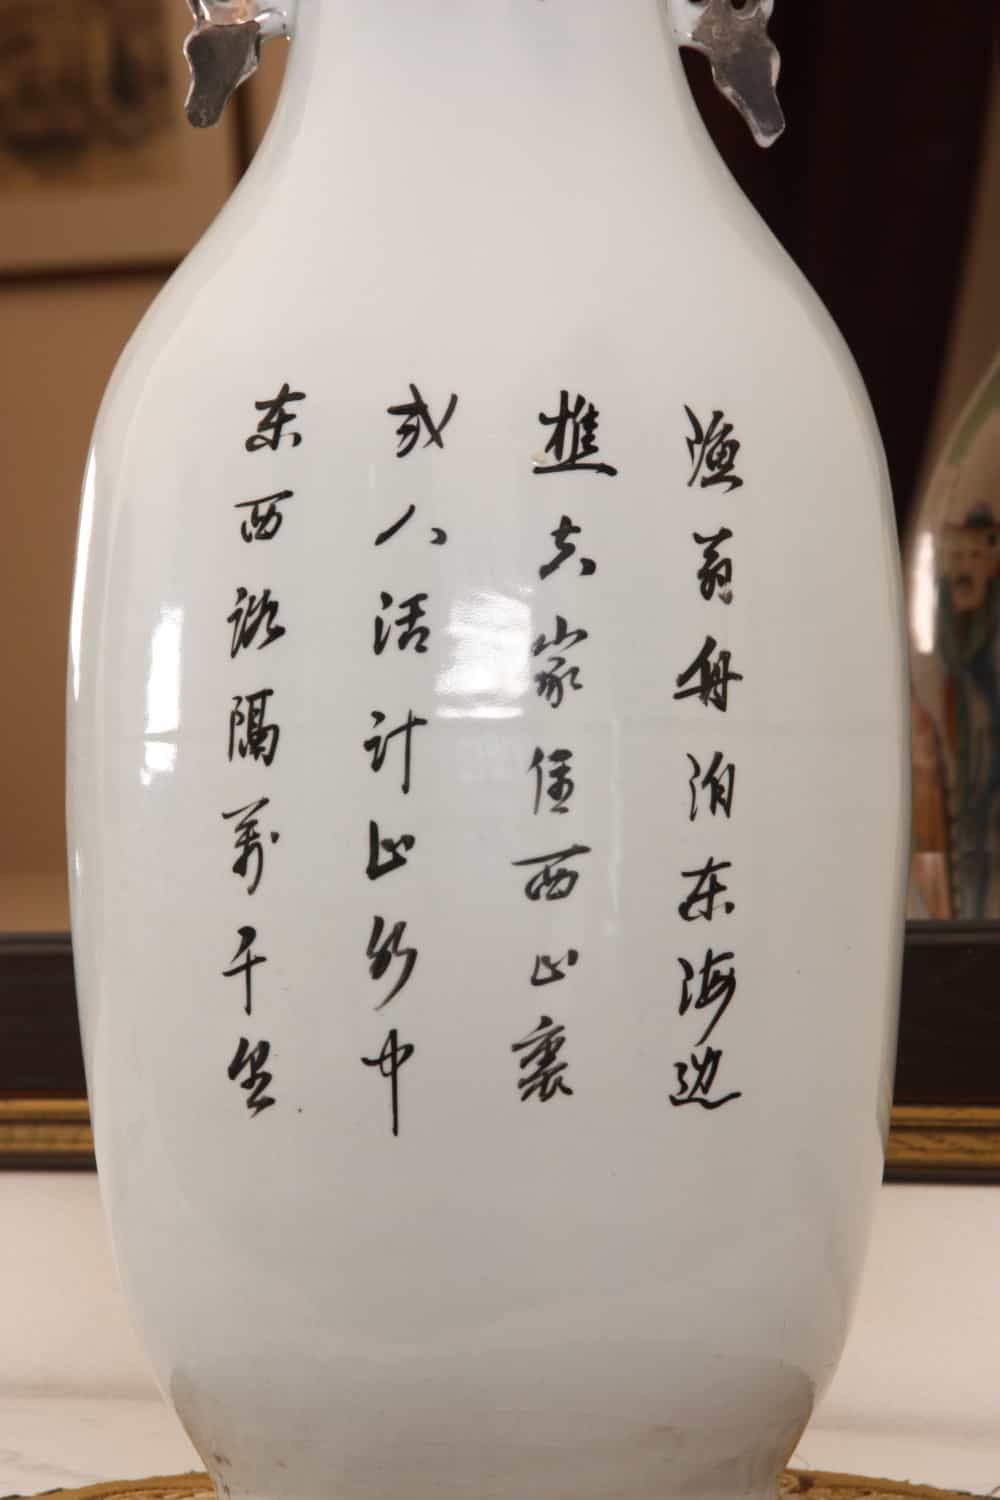 渔翁舟泊东海边
樵夫家住西山里
两人活计山水中
东西路隔万千里